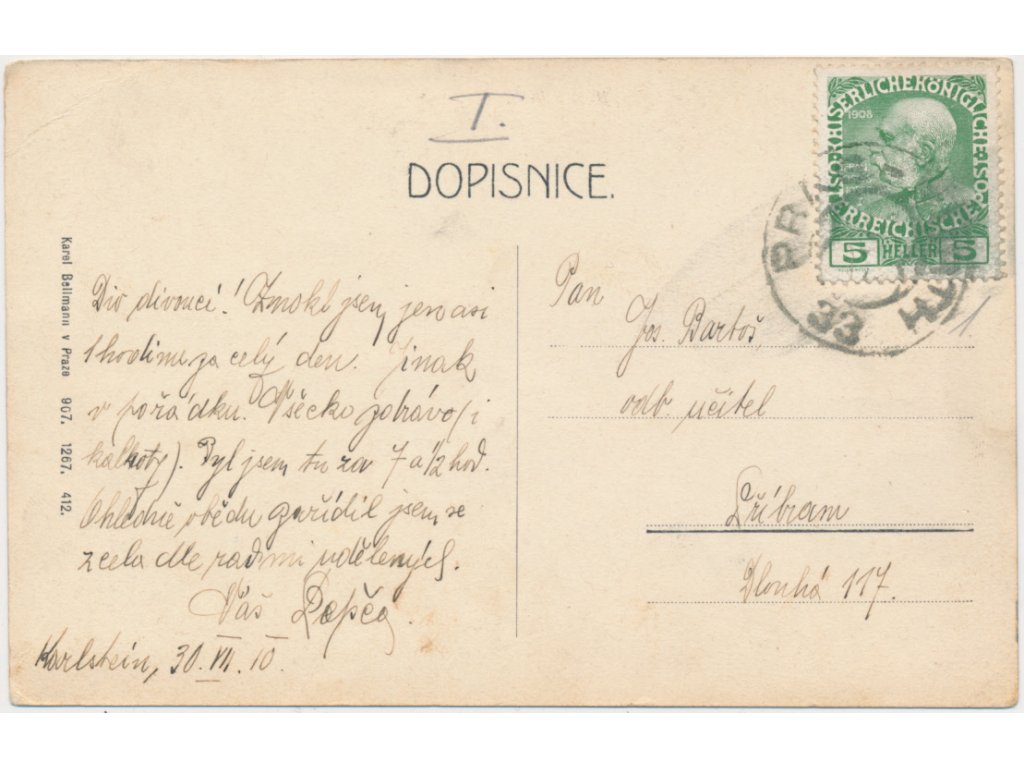 I.
DOPISNICE.
KAISERLICHE KÖNIGLICHE ÖSTERREICHISCHE POST
1908
5 HELLER 5
33
1.
Karel Bellmann v Praze 907. 1267. 412.
Div divoucí! Zmokl jsem jen asi
1 hodinu za celý den. Jinak
v pořádku. Všecko zdrávo (i
kalhoty). Byl jsem tu za 7 a 1/2 hod.
Ohledně obědu zařídil jsem se
zcela dle rad mi udělených.
Váš
Karlstein, 30. VII. 10.
Pan
Jos. Bartoš,
odb. učitel
Příbram
Dlouhá 117.